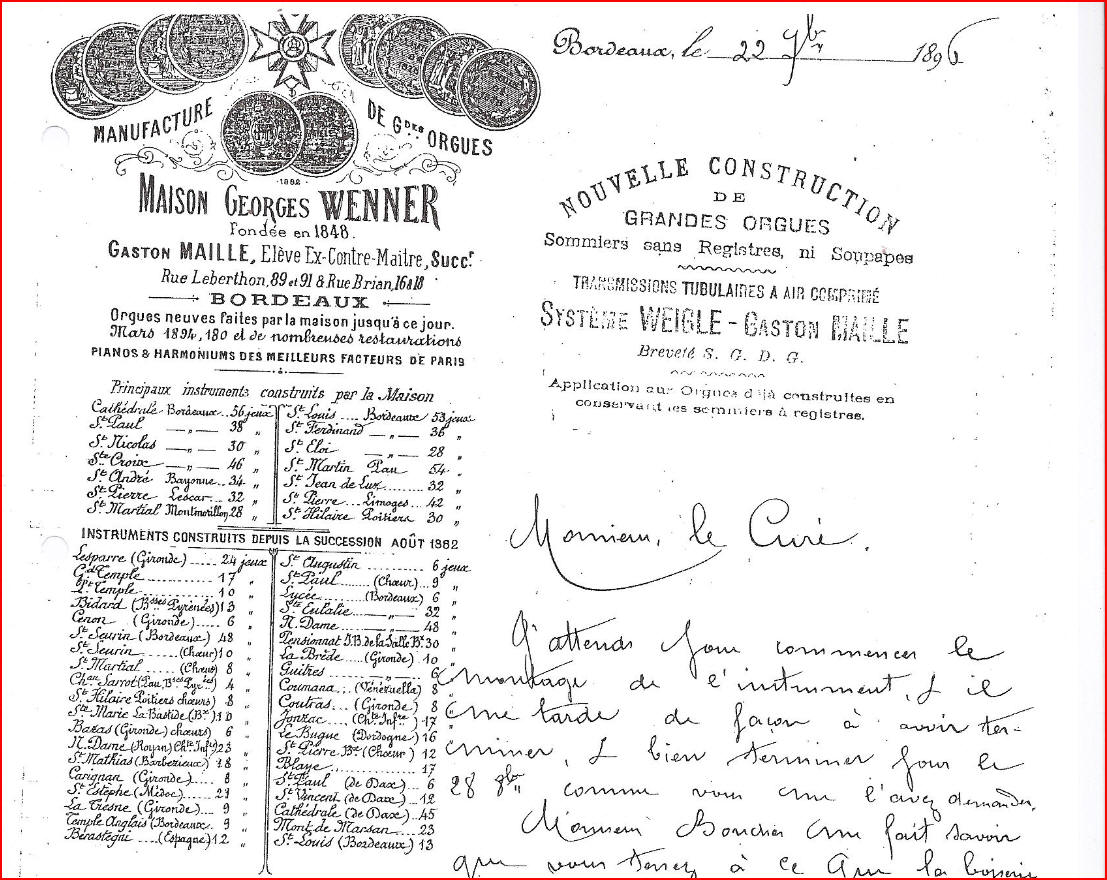 Bordeaux, le 22 7bre 1896
MANUFACTURE DE Gdes ORGUES
1882
MAISON GEORGES WENNER
Fondée en 1848.
GASTON MAILLE, Elève Ex-Contre-Maitre, Succr
Rue Leberthon, 89 et 91 & Rue Brian, 16 à 18
BORDEAUX
Orgues neuves faites par la maison jusqu'à ce jour.
Mars 1894, 180 et de nombreuses restaurations
PIANOS & HARMONIUMS DES MEILLEURS FACTEURS DE PARIS
NOUVELLE CONSTRUCTION
DE
GRANDES ORGUES
Sommiers sans Registres, ni Soupapes
TRANSMISSIONS TUBULAIRES A AIR COMPRIMÉ
SYSTÈME WEIGLE - GASTON MAILLE
Breveté S. G. D. G.
Application aux Orgues déjà construites en
conservant les sommiers à registres.
Principaux instruments construits par la Maison
Cathédrale Bordeaux.. 56 jeux
St Paul —„— 38 „
St Nicolas —„— 30 „
Ste Croix —„— 46 „
St André Bayonne.. 34 „
St Pierre Lescar... 32 „
St Martial Montmorillon 28 „
St Louis .... Bordeaux 53 jeux
St Ferdinand —„— 36 „
St Eloi —„— 28 „
St Martin Pau 54 „
St Jean de Luz....... 32 „
St Pierre ... Limoges.. 42 „
St Hilaire Poitiers 30 „
INSTRUMENTS CONSTRUITS DEPUIS LA SUCCESSION AOÛT 1882
Lesparre (Gironde)..... 24 jeux
Gd Temple............ 17 „
Pt Temple............ 10 „
Bidard (Bses Pyrénées) 13 „
Cenon (Gironde)..... 6 „
St Seurin (Bordeaux) 48 „
St Seurin.....(Chœur) 10 „
St Martial (Chœur) 8 „
Chau Sarrot (Pau, Bses Pyrées) 4 „
St Hilaire Poitiers chœurs) 8 „
Ste Marie La Bastide (Bx) 10 „
Bazas (Gironde) chœurs) 6 „
N. Dame (Royan) Chte Infre) 23 „
St Mathias (Barbezieux) 18 „
Carignan (Gironde).... 8 „
St Estèphe (Médoc)..... 21 „
La Tresne (Gironde).... 9 „
Temple Anglais (Bordeaux. 9 „
Bérastégui ....(Espagne) 12 „
St Augustin ............ 6 jeux
St Paul .......(Chœur).. 9 „
Lycée .........(Bordeaux) 6 „
Ste Eulalie ........„.... 32 „
N. Dame ........„.... 48 „
Pensionnat J.B. de la Salle Bx 30 „
La Brède ....(Gironde). 10 „
Guitres ........„..... 6 „
Coumana...(Vénézuella) 8 „
Coutras....(Gironde) 8 „
Jonzac .....(Chte Infre) .17 „
Le Bugue (Dordogne) 16 „
St Pierre Bx (Chœur) 12 „
Blaye .............. 17 „
St Paul (de Dax)... 6 „
St Vincent (de Dax)... 12 „
Cathédrale (de Dax)... 45 „
Mont de Marsan..... 23 „
St Louis (Bordeaux) 13 „
Monsieur, le Curé.
J'attends pour commencer le
montage de l'instrument, & il
me tarde de façon à avoir ter-
miner, & bien terminer pour le
28 comme vous me l'avez demander.
Monsieur Boucher me fait savoir
que vous tenez à ce que la boiserie